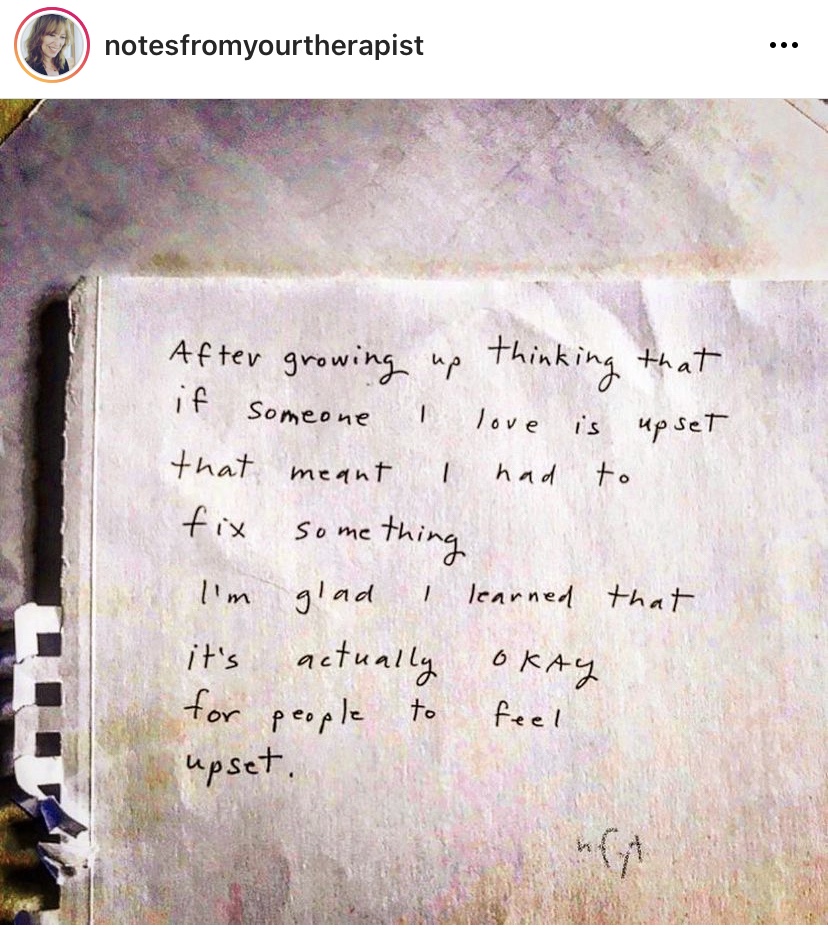 notesfromyourtherapist
After growing up thinking that
if someone I love is upset
that meant I had to
fix something
I'm glad I learned that
it's actually OKAY
for people to feel
upset.
nfyt